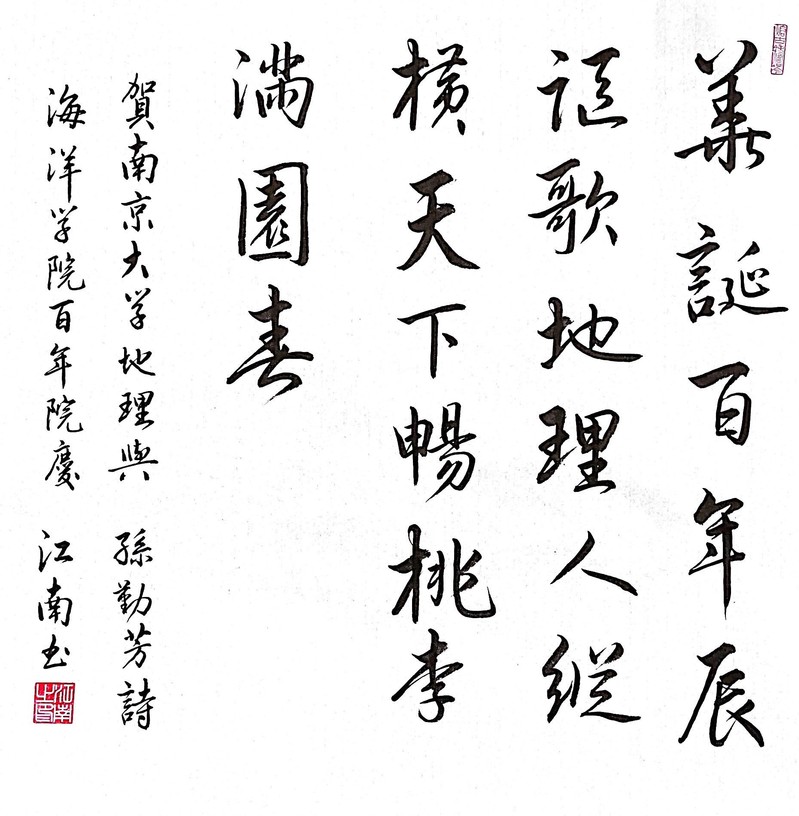 華誕百年辰
謳歌地理人縱
横天下暢桃李
满園春
賀南京大学地理與
海洋学院百年院慶
孫勤芳詩
江南书
江南之印